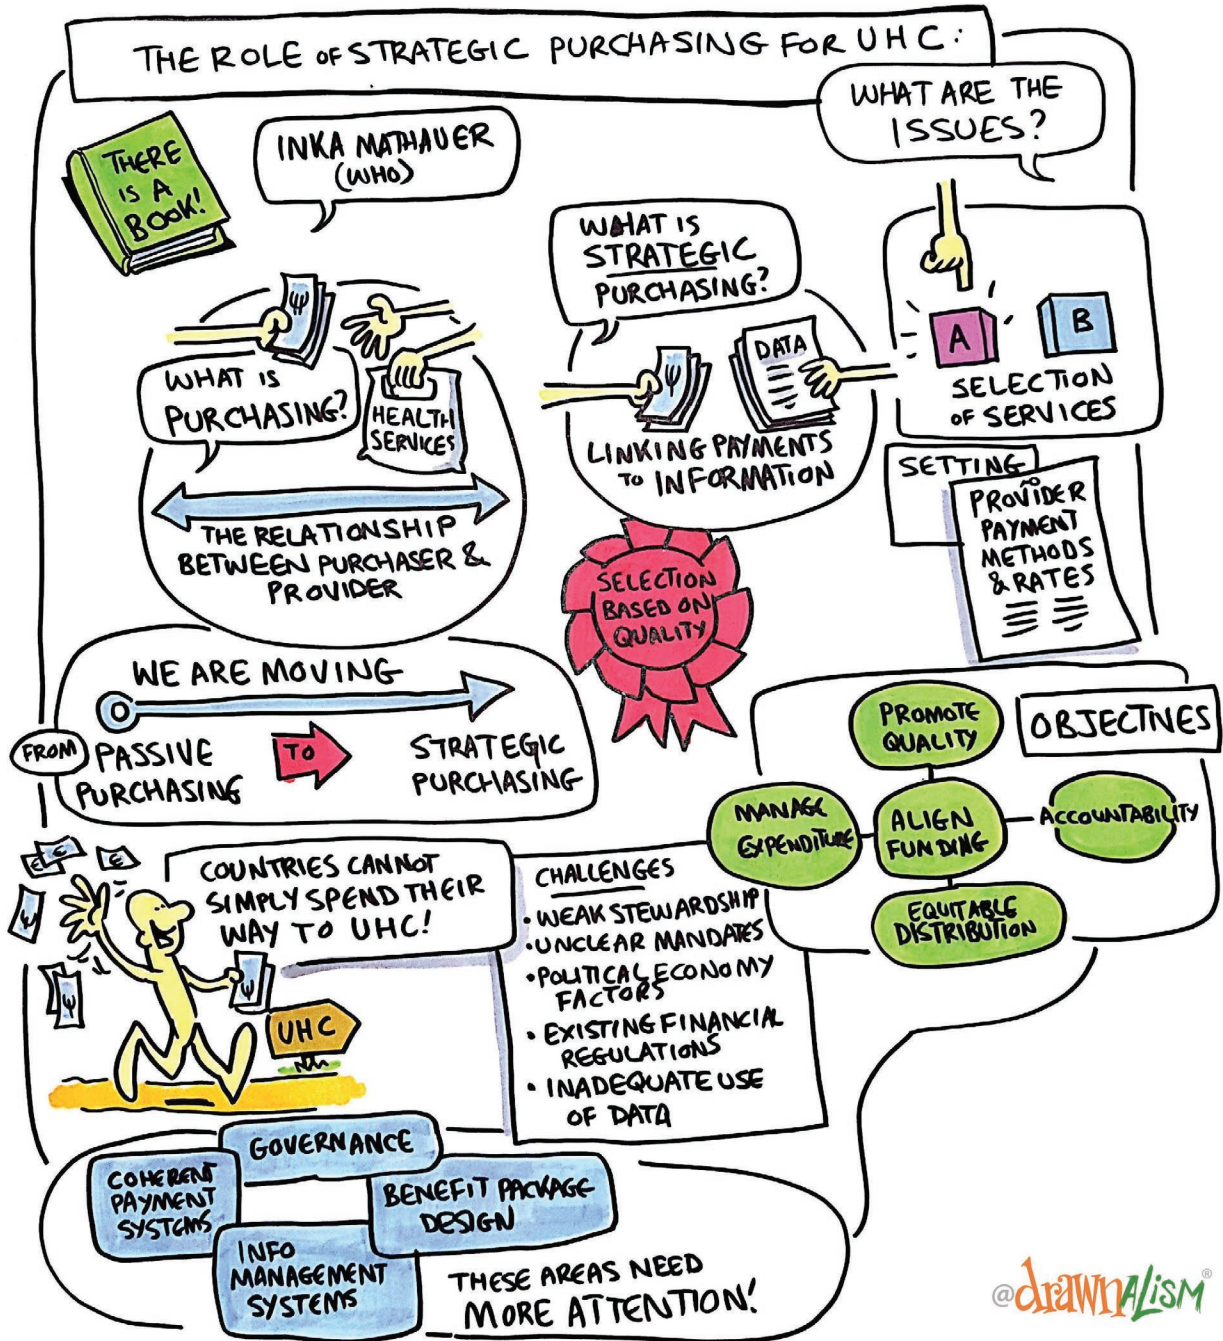 THE ROLE OF STRATEGIC PURCHASING FOR UHC:
WHAT ARE THE
ISSUES?
THERE
IS A
BOOK!
INKA MATHAUER
(WHO)
WHAT IS
PURCHASING?
HEALTH
SERVICES
THE RELATIONSHIP
BETWEEN PURCHASER &
PROVIDER
WHAT IS
STRATEGIC
PURCHASING?
DATA
LINKING PAYMENTS
TO INFORMATION
A
B
SELECTION
OF SERVICES
SETTING
PROVIDER
PAYMENT
METHODS
& RATES
SELECTION
BASED ON
QUALITY
WE ARE MOVING
FROM PASSIVE
PURCHASING
TO
STRATEGIC
PURCHASING
OBJECTIVES
PROMOTE
QUALITY
MANAGE
EXPENDITURE
ALIGN
FUNDING
ACCOUNTABILITY
EQUITABLE
DISTRIBUTION
COUNTRIES CANNOT
SIMPLY SPEND THEIR
WAY TO UHC!
UHC
CHALLENGES
• WEAK STEWARDSHIP
• UNCLEAR MANDATES
• POLITICAL ECONOMY
FACTORS
• EXISTING FINANCIAL
REGULATIONS
• INADEQUATE USE
OF DATA
GOVERNANCE
COHERENT
PAYMENT
SYSTEMS
BENEFIT PACKAGE
DESIGN
INFO
MANAGEMENT
SYSTEMS
THESE AREAS NEED
MORE ATTENTION!
@drawnalism®